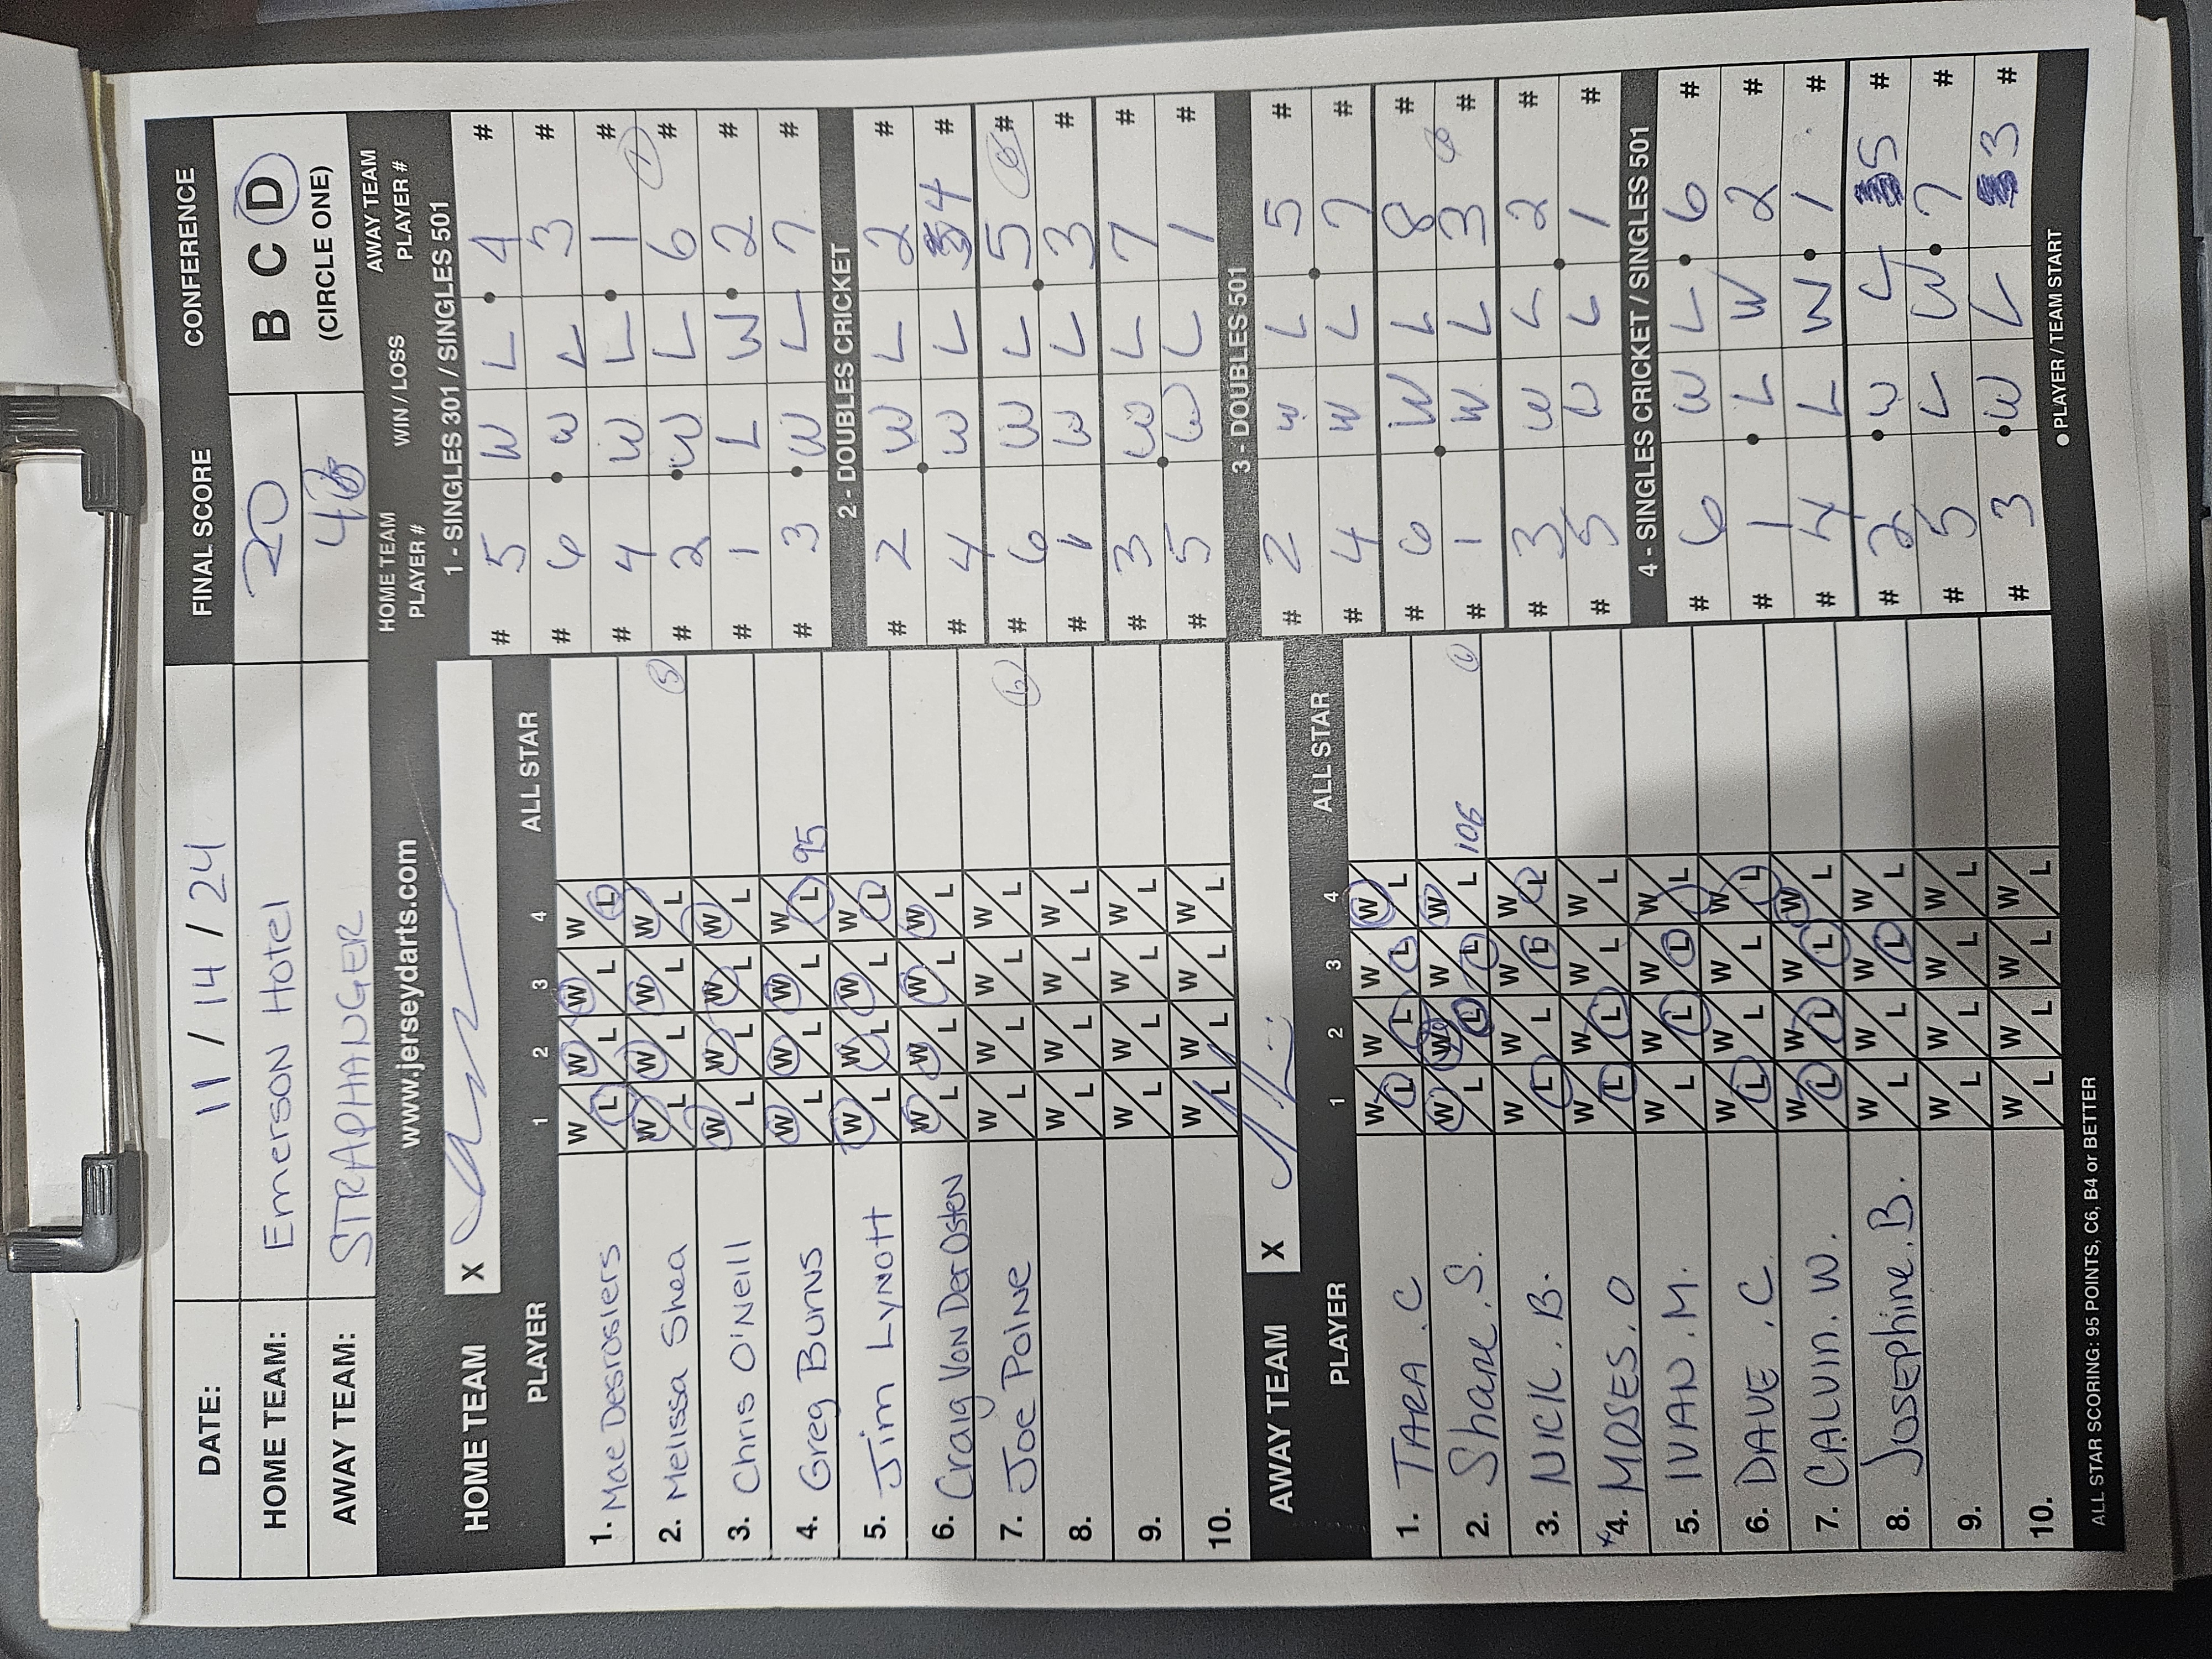 DATE: 11 / 14 / 24 FINAL SCORE CONFERENCE
HOME TEAM: Emerson Hotel 20 B C D
AWAY TEAM: STRAPHANGER 4 (CIRCLE ONE)
www.jerseydarts.com
HOME TEAM X
PLAYER 1 2 3 4 ALL STAR
1. Mae Desrosiers W L W L W L W L
2. Melissa Shea W L W L W L W L 5
3. Chris O'Neill W L W L W L W L
4. Greg Burns W L W L W L W L 95
5. Jim Lynott W L W L W L W L
6. Craig Van Der Osten W L W L W L W L
7. Joe Poine W L W L W L W L 6
8. W L W L W L W L
9. W L W L W L W L
10. W L W L W L W L
AWAY TEAM X
PLAYER 1 2 3 4 ALL STAR
1. TARA . C W L W L W L W L
2. Shane . S. W L W L W L W L 106
3. NICK . B. W L W L W L W L
4. MOSES . O W L W L W L W L
5. IVAN . M. W L W L W L W L
6. DAVE . C. W L W L W L W L
7. CALVIN . W. W L W L W L W L
8. JOSEPhine . B. W L W L W L W L
9. W L W L W L W L
10. W L W L W L W L
ALL STAR SCORING: 95 POINTS, C6, B4 or BETTER
HOME TEAM PLAYER # WIN / LOSS AWAY TEAM PLAYER #
1 - SINGLES 301 / SINGLES 501
# 5 W L 4 #
# 6 W L 3 #
# 4 W L 1 #
# 2 W L 6 # 1
# 1 L W 2 #
# 3 W L 7 #
2 - DOUBLES CRICKET
# 2 W L 2 #
# 4 W L 4 #
# 6 W L 5 # 6
# 1 W L 3 #
# 3 W L 7 #
# 5 W L 1 #
3 - DOUBLES 501
# 2 W L 5 #
# 4 W L 7 #
# 6 W L 8 #
# 1 W L 3 #
# 3 W L 2 #
# 5 W L 1 #
4 - SINGLES CRICKET / SINGLES 501
# 6 W L 6 #
# 1 L W 2 #
# 4 L W 1 #
# 2 W L 5 #
# 5 L W 7 #
# 3 W L 3 #
● PLAYER / TEAM START